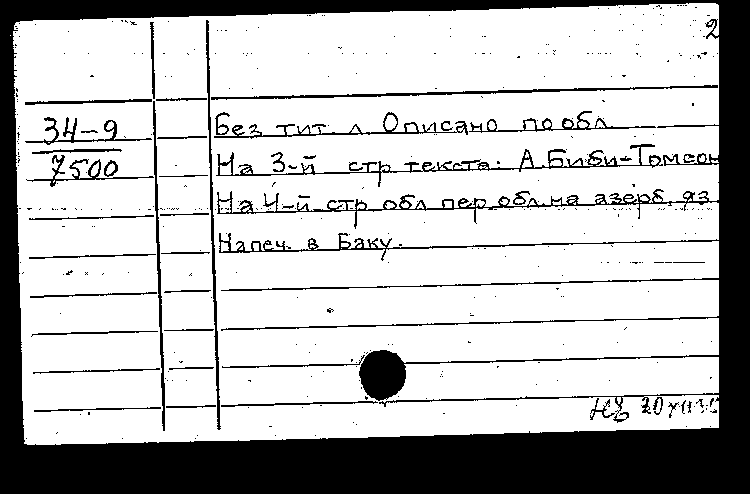 2
34-9
7500
Без тит. л. Описано по обл.
На 3-й стр текста: А. Биби-Томсон
На 4-й стр обл пер. обл. на азерб. яз.
Напеч. в Баку.